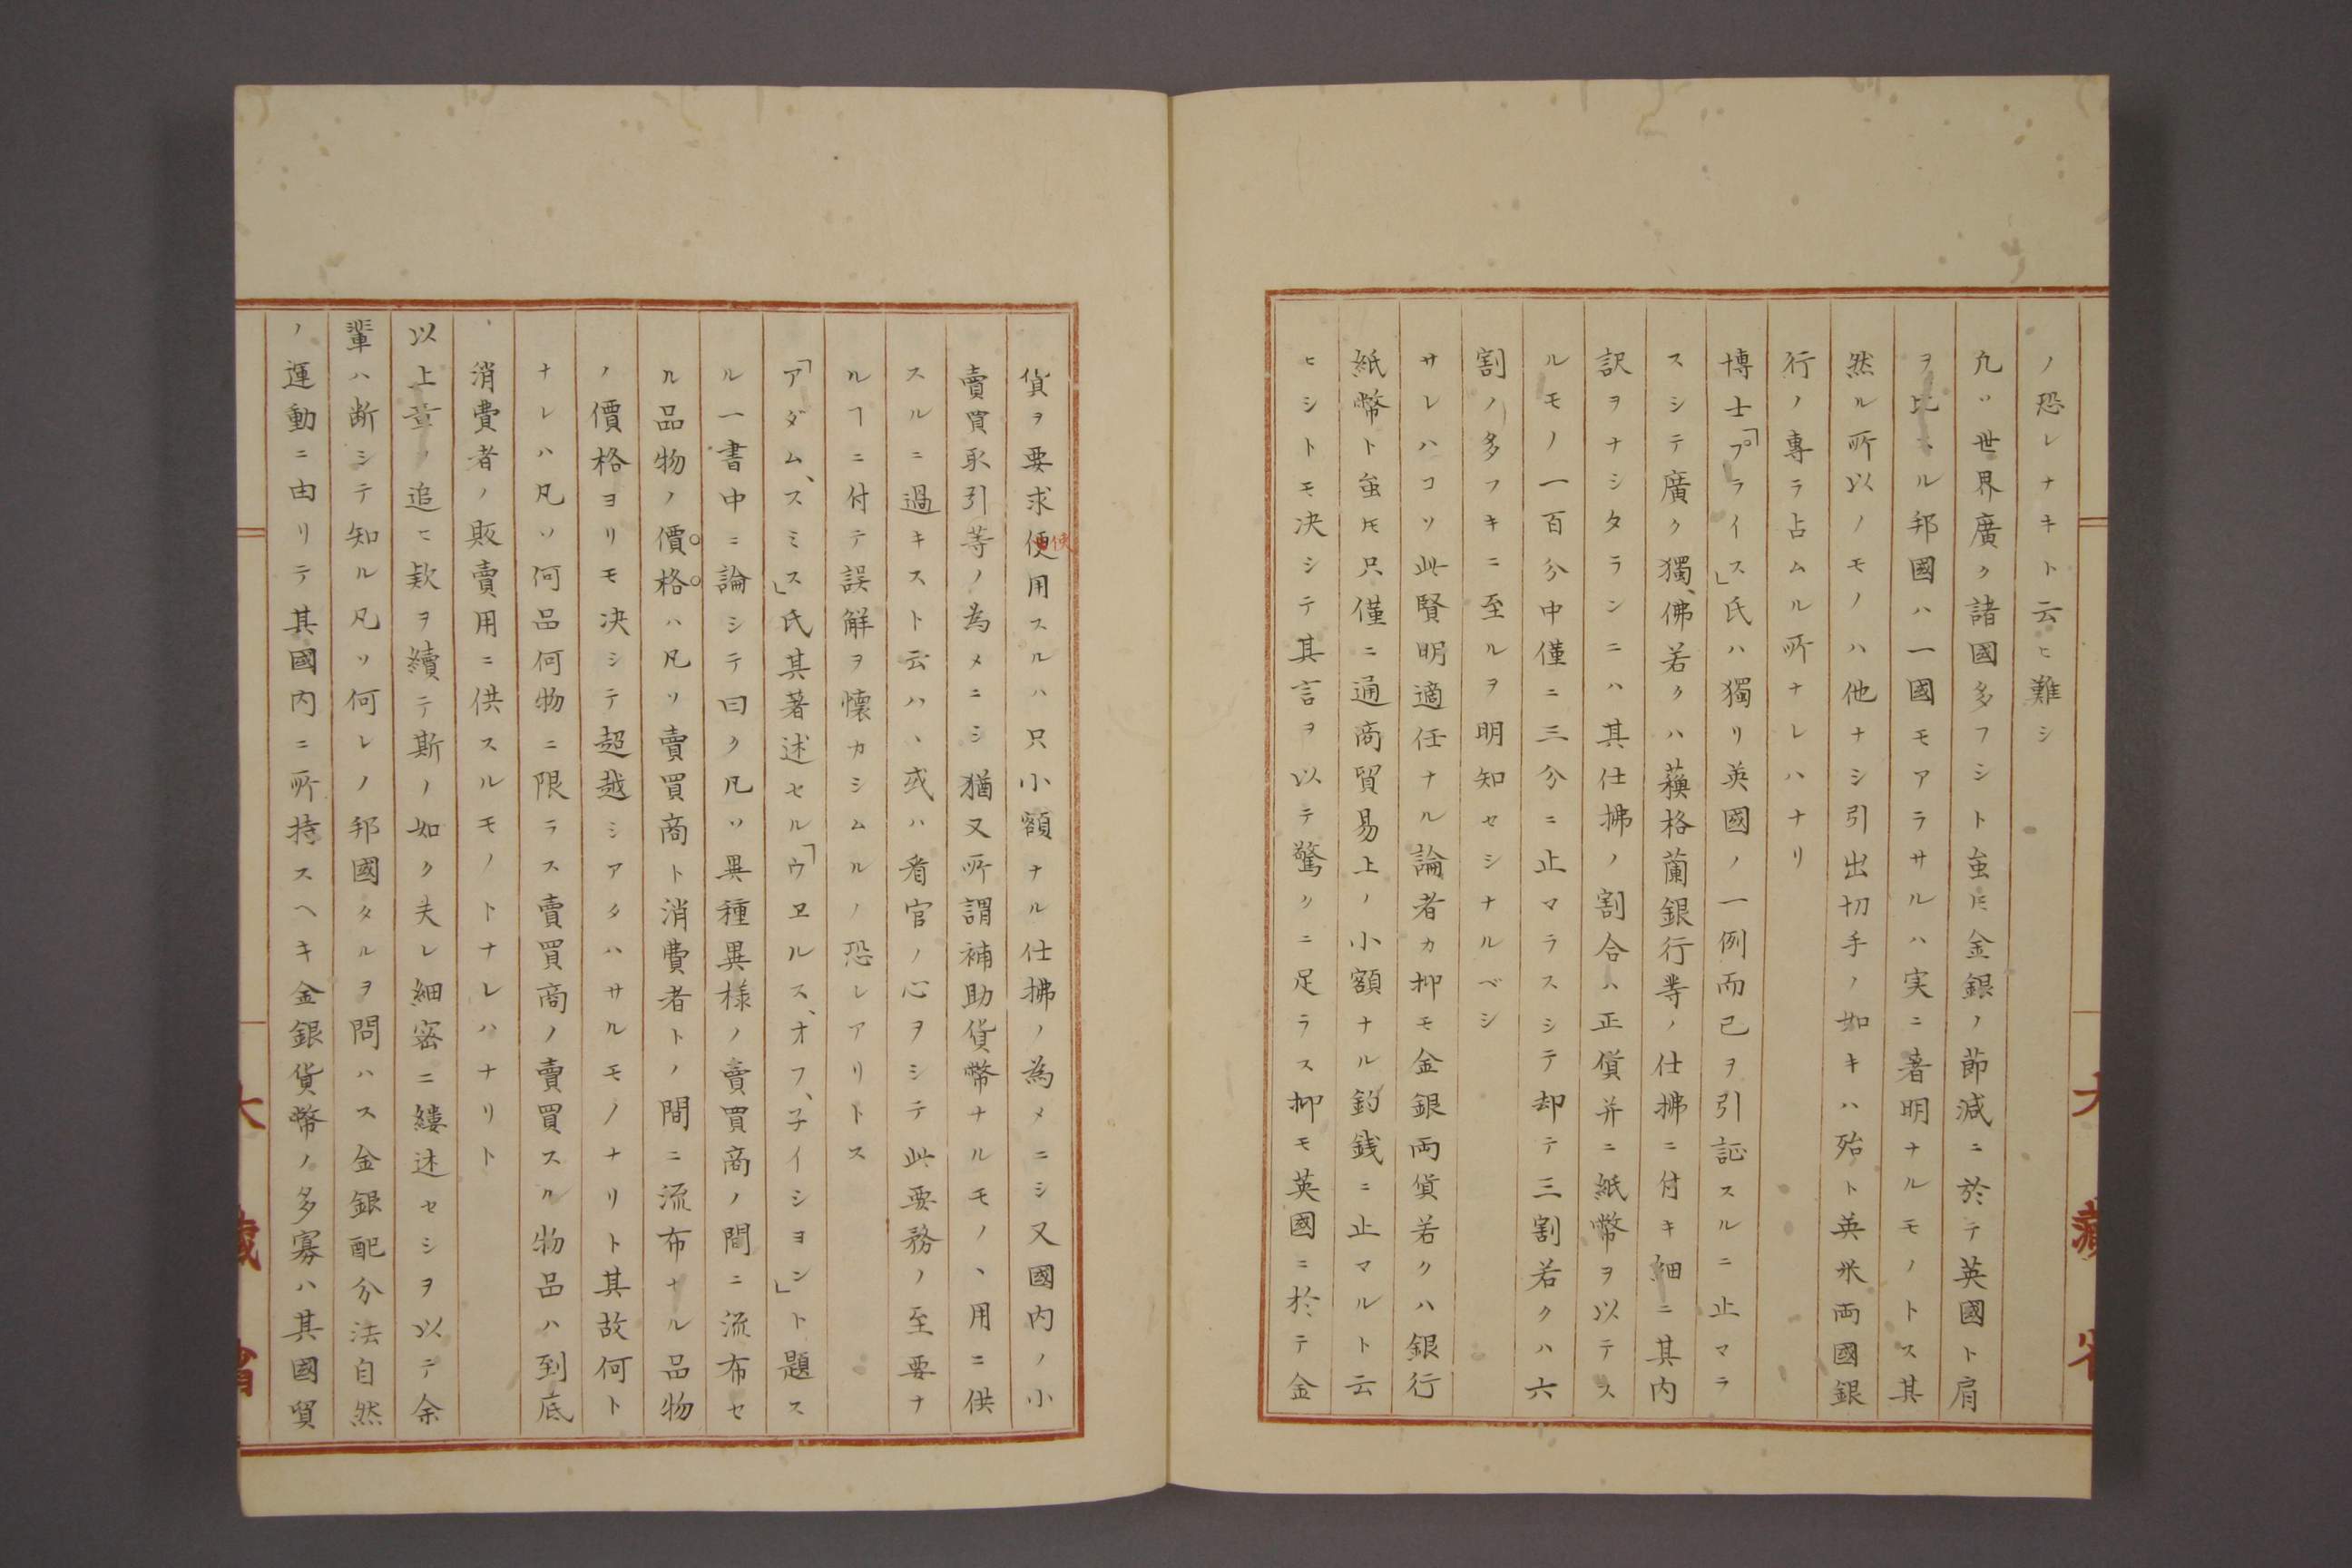 ノ恐レナキト云ヒ難シ
凢ソ世界廣ク諸國多フシト虽𪜈金銀ノ節減ニ於テ英國ト肩
ヲ比フル邦國ハ一國モアラサルハ実ニ著明ナルモノトス其
然ル所以ノモノハ他ナシ引出切手ノ如キハ殆ト英米両國銀
行ノ專ラ占ムル所ナレハナリ
博士「プライス」氏ハ獨リ英國ノ一例而已ヲ引証スルニ止マラ
スシテ廣ク獨、佛若クハ蘓格蘭銀行䓁ノ仕拂ニ付キ細ニ其内
訳ヲナシタランニハ其仕拂ノ割合ハ正貨并ニ紙幣ヲ以テス
ルモノ一百分中僅ニ三分ニ止マラスシテ却テ三割若クハ六
割ノ多フキニ至ルヲ明知セシナルベシ
サレハコソ此賢明適任ナル論者カ抑モ金銀両貨若クハ銀行
紙幣ト虽𪜈只僅ニ通商貿易上ノ小額ナル釣銭ニ止マルト云
ヒシトモ决シテ其言ヲ以テ驚クニ足ラス抑モ英國ニ於テ金
貨ヲ要求便用スルハ只小額ナル仕拂ノ為メニシ又國内ノ小
使
賣買取引等ノ為メニシ猶又所謂補助貨幣ナルモノヽ用ニ供
スルニ過キスト云ハヽ或ハ看官ノ心ヲシテ此要務ノ至要ナ
ルヿニ付テ誤解ヲ懐カシムルノ恐レアリトス
「アダム、スミス」氏其著述セル「ウヱルス、オフ、子イシヨン」ト題ス
ル一書中ニ論シテ曰ク凡ソ異種異様ノ賣買商ノ間ニ流布セ
ル品物ノ價格ハ凡ソ賣買商ト消費者トノ間ニ流布ナル品物
ノ價格ヨリモ决シテ超越シアタハサルモノナリト其故何ト
ナレハ凡ソ何品何物ニ限ラス賣買商ノ賣買スル物品ハ到底
消費者ノ販賣用ニ供スルモノトナレハナリト
以上章ノ追ヒ欵ヲ續テ斯ノ如ク夫レ細密ニ縷述セシヲ以テ余
輩ハ断シテ知ル凡ソ何レノ邦國タルヲ問ハス金銀配分法自然
ノ運動ニ由リテ其國内ニ所持スヘキ金銀貨幣ノ多寡ハ其國貿
大藏省